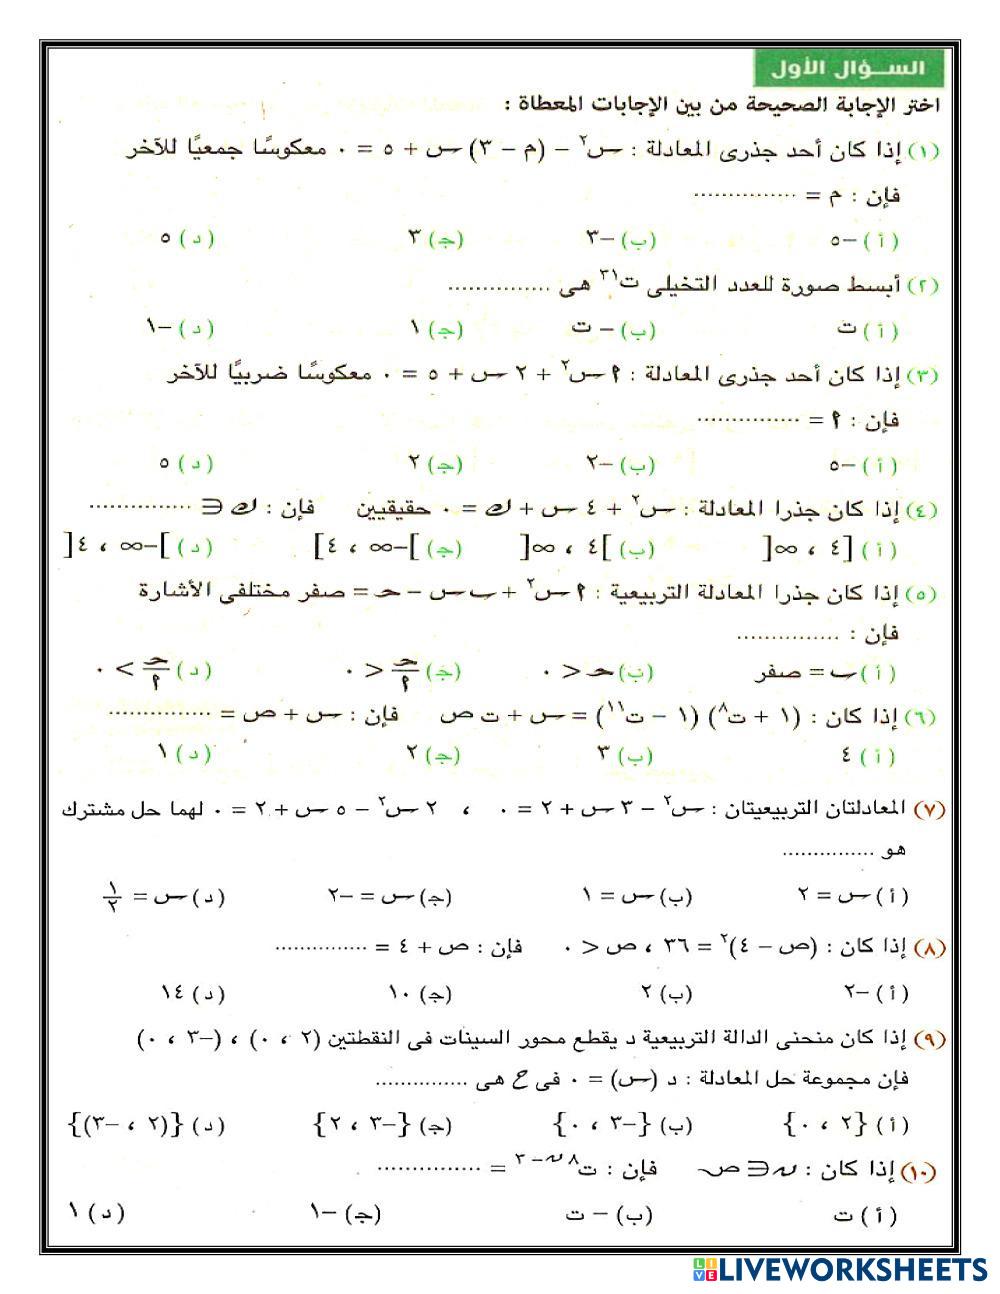 السؤال الأول
اختر الإجابة الصحيحة من بين الإجابات المعطاة :
(١) إذا كان أحد جذرى المعادلة : س٢ – (م – ٣) س + ٥ = ٠ معكوسًا جمعيًا للآخر
فإن : م = ...............
(أ) –٥ (ب) –٣ (ج) ٣ (د) ٥
(٢) أبسط صورة للعدد التخيلى ت٣١ هى ...............
(أ) ت (ب) – ت (ج) ١ (د) –١
(٣) إذا كان أحد جذرى المعادلة : ٢ س٢ + ٢ س + ٥ = ٠ معكوسًا ضربيًا للآخر
فإن : ٢ = ...............
(أ) –٥ (ب) –٢ (ج) ٢ (د) ٥
(٤) إذا كان جذرا المعادلة : س٢ + ٤ س + ك = ٠ حقيقيين فإن : ك ∈ ...............
(أ) [٤ ، ∞[ (ب) ]٤ ، ∞[ (ج) ]–∞ ، ٤] (د) ]–∞ ، ٤[
(٥) إذا كان جذرا المعادلة التربيعية : ٢ س٢ + ب س – حـ = صفر مختلفى الأشارة
فإن : ...............
(أ) ب = صفر (ب) حـ > ٠ (ج) حـ/٢ > ٠ (د) حـ/٢ < ٠
(٦) إذا كان : (١ + ت٨) (١ – ت١١) = س + ت ص فإن : س + ص = ...............
(أ) ٤ (ب) ٣ (ج) ٢ (د) ١
(٧) المعادلتان التربيعيتان : س٢ – ٣ س + ٢ = ٠ ، ٢ س٢ – ٥ س + ٢ = ٠ لهما حل مشترك
هو ...............
(أ) س = ٢ (ب) س = ١ (ج) س = –٢ (د) س = ١/٢
(٨) إذا كان : (ص – ٤)٢ = ٣٦ ، ص > ٠ فإن : ص + ٤ = ...............
(أ) –٢ (ب) ٢ (ج) ١٠ (د) ١٤
(٩) إذا كان منحنى الدالة التربيعية د يقطع محور السينات فى النقطتين (٢ ، ٠) ، (–٣ ، ٠)
فإن مجموعة حل المعادلة : د (س) = ٠ فى ح هى ...............
(أ) {٢ ، ٠} (ب) {–٣ ، ٠} (ج) {–٣ ، ٢} (د) {(٢ ، –٣)}
(١٠) إذا كان : ن ∈ ص فإن : ت٨ ن – ٢ = ...............
(أ) ت (ب) – ت (ج) –١ (د) ١
LIVEWORKSHEETS